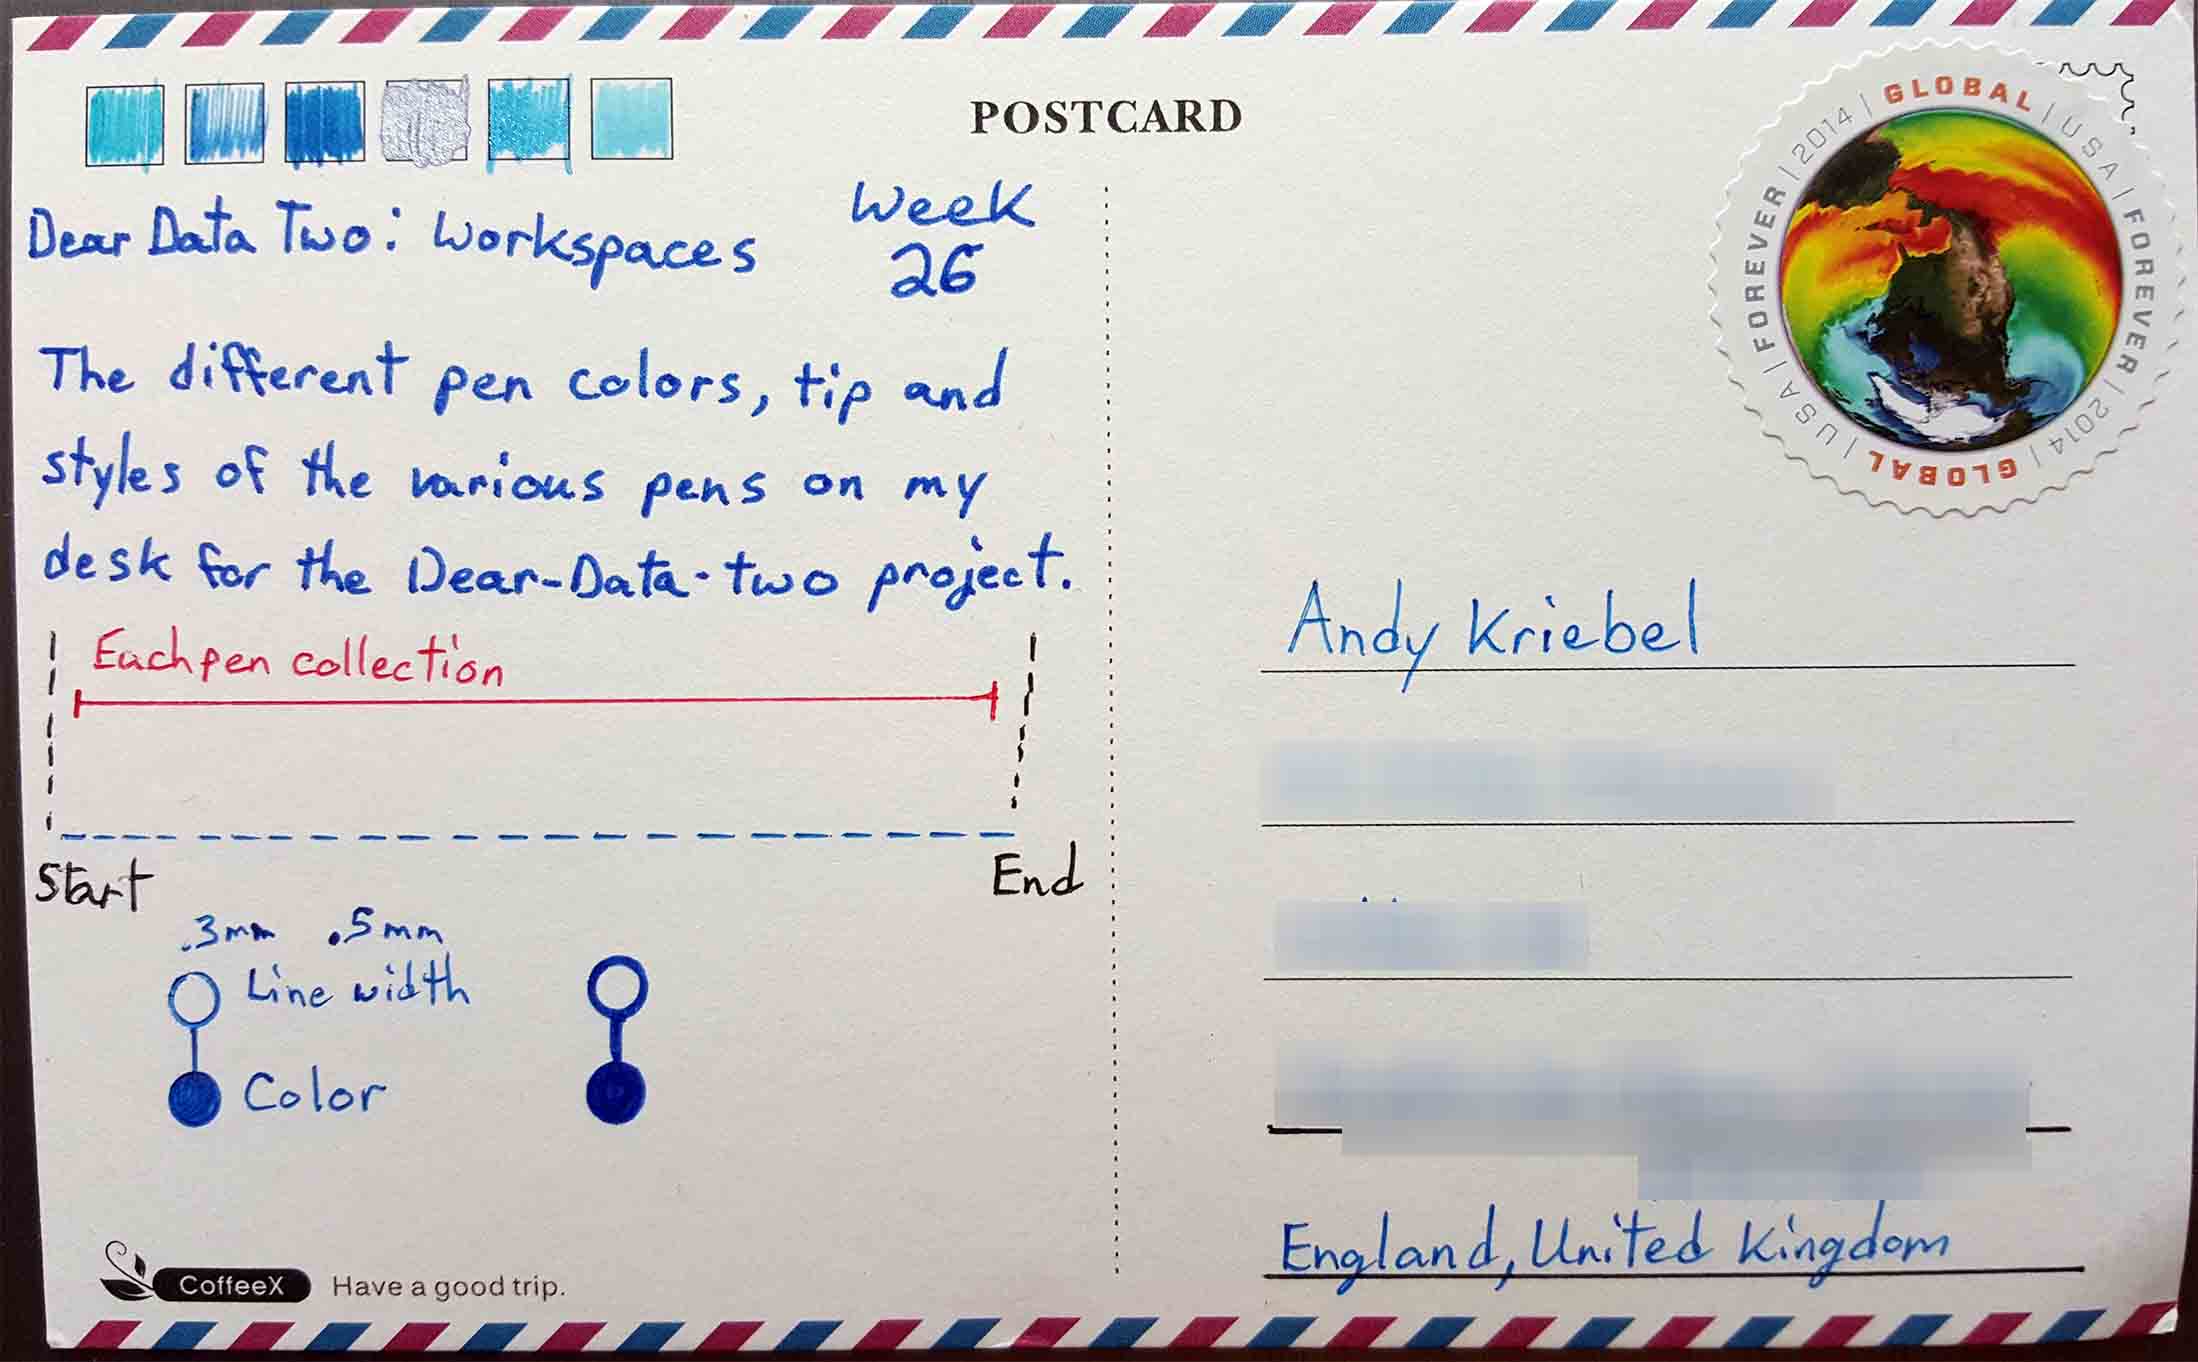 POSTCARD
Dear Data Two: Workspaces
Week
26
The different pen colors, tip and
styles of the various pens on my
desk for the Dear-Data-two project.
Each pen collection
Start
End
.3mm .5mm
Line width
Color
CoffeeX Have a good trip.
GLOBAL | USA | FOREVER | 2014 | GLOBAL | USA | FOREVER | 2014 |
Andy Kriebel
England, United Kingdom